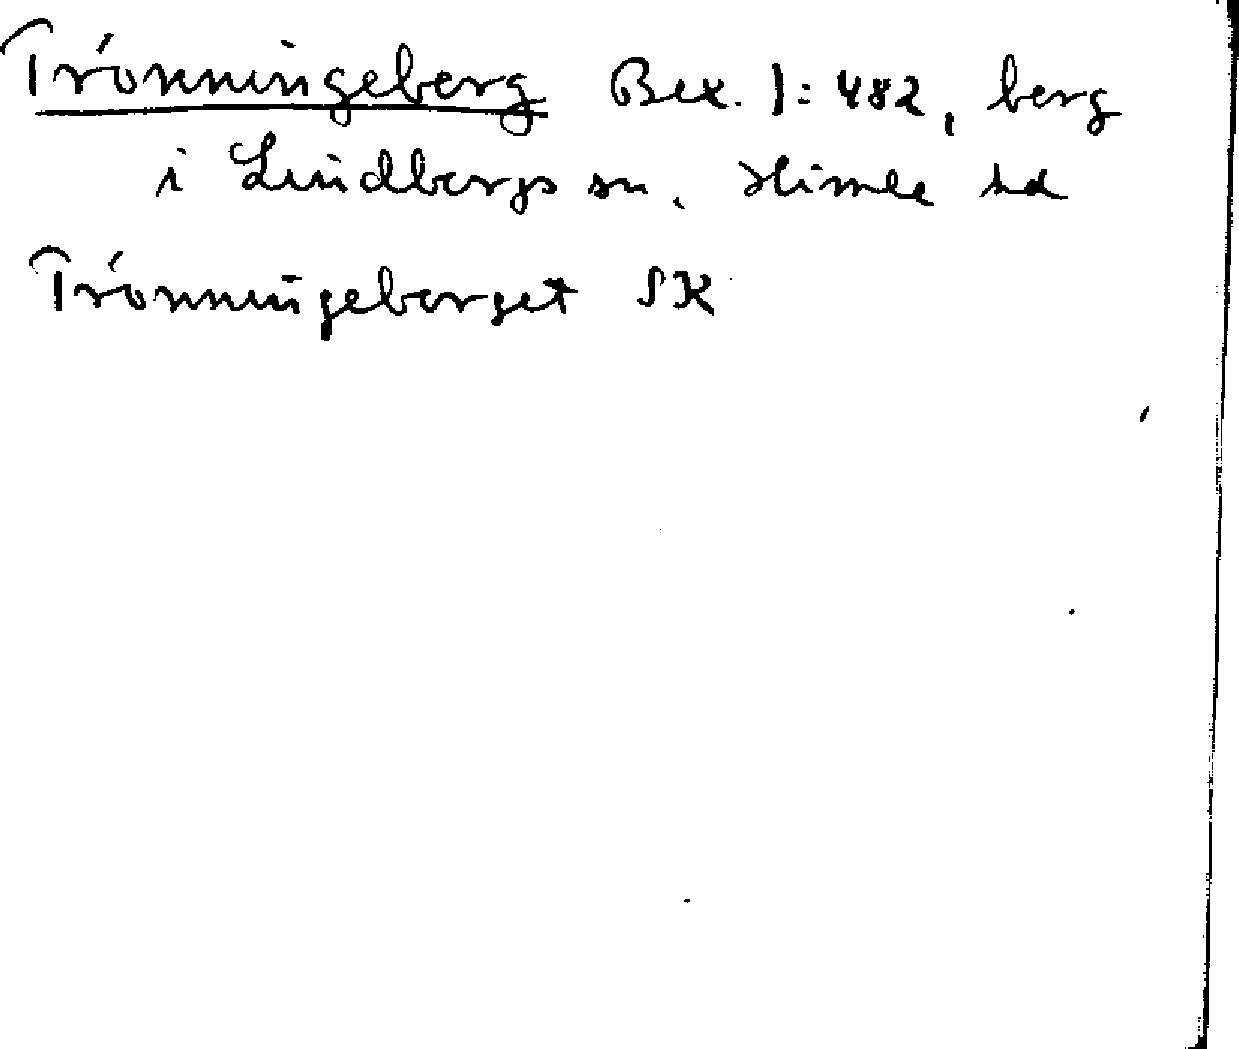 Trönningeberg Bex. I:482, berg
i Lindbergs sn. Himle hd
Trönningeberget SK